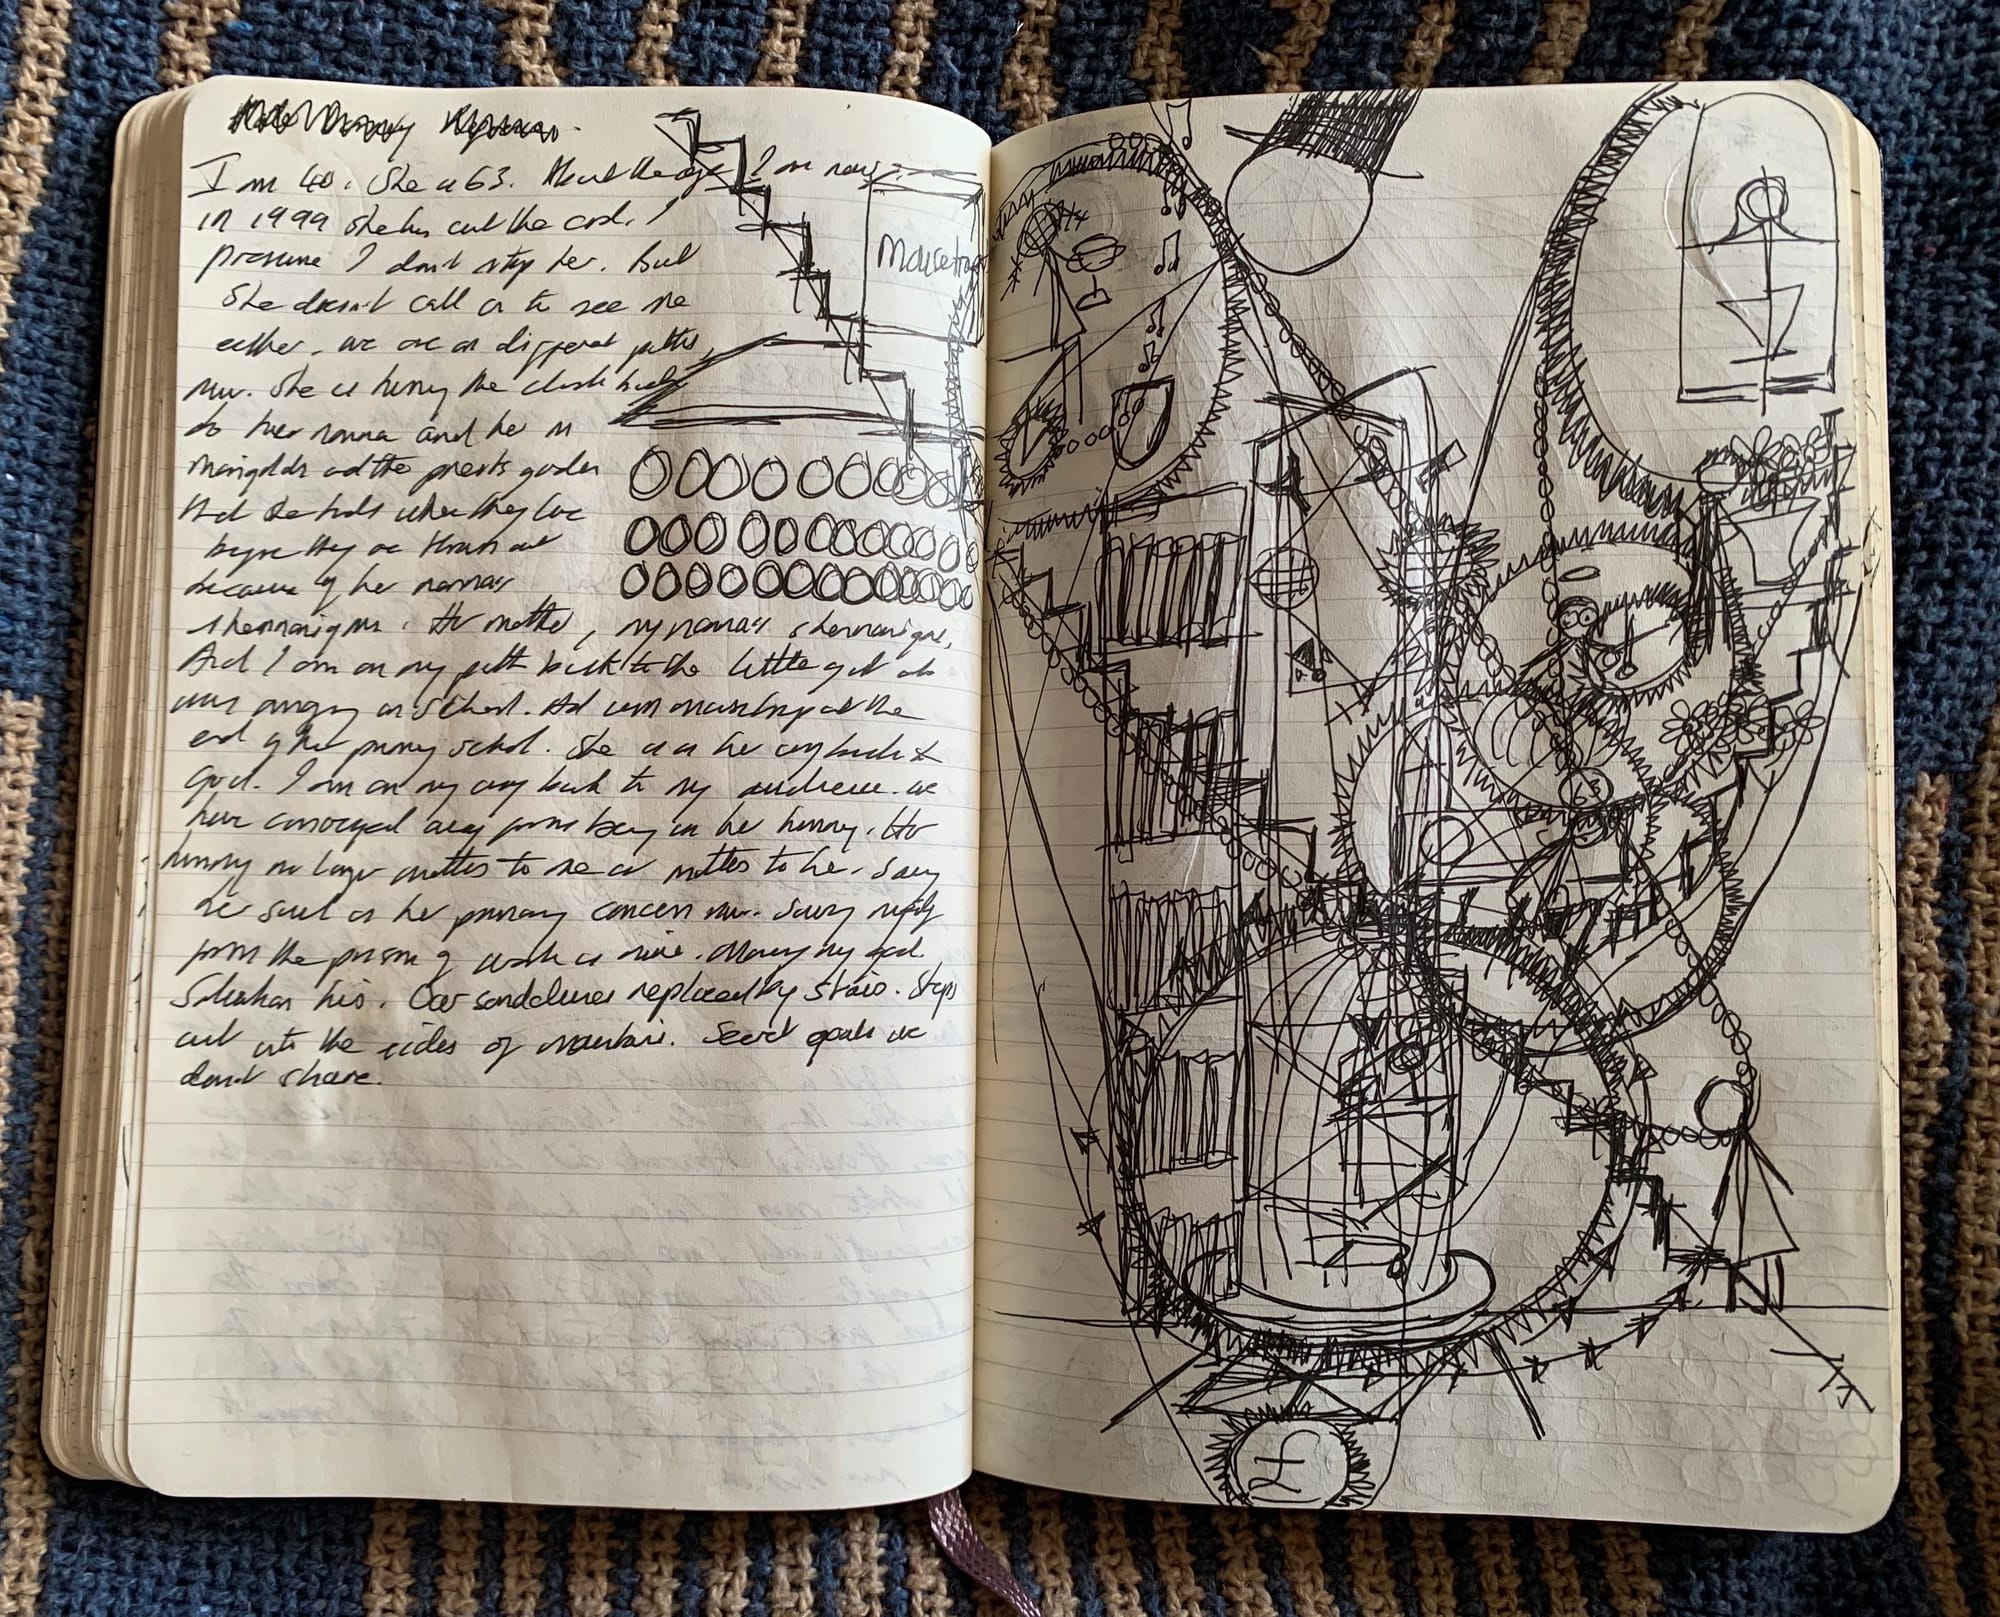 I am 40. She is 63. About the age I am now.
in 1999 she has cut the cord. I
presume I don't stop her. But
She doesn't call or to see me
either. we are on different paths,
now. She is the climb back
to her nanna and her
marigolds and the priests garden
that she finds where they live
before they are thrown out
because of her nanna's
shennanigans. Her mother, my nanna's shennanigans,
And I am on my path back to the little girl who
was singing in School. And won mousetrap at the
end of her primary school. She is on her way back to
God. I am on my way back to my audience. we
have converged away from being in her tummy. Her
tummy no longer matters to me or matters to her. Saving
her soul is her primary concern now. Saving myself
from the prison of work is mine. Money my god.
Salvation his. Our sandclimes replaced by stairs. Steps
cut into the sides of mountains. Secret goals we
don't share.
Mousetrap
63